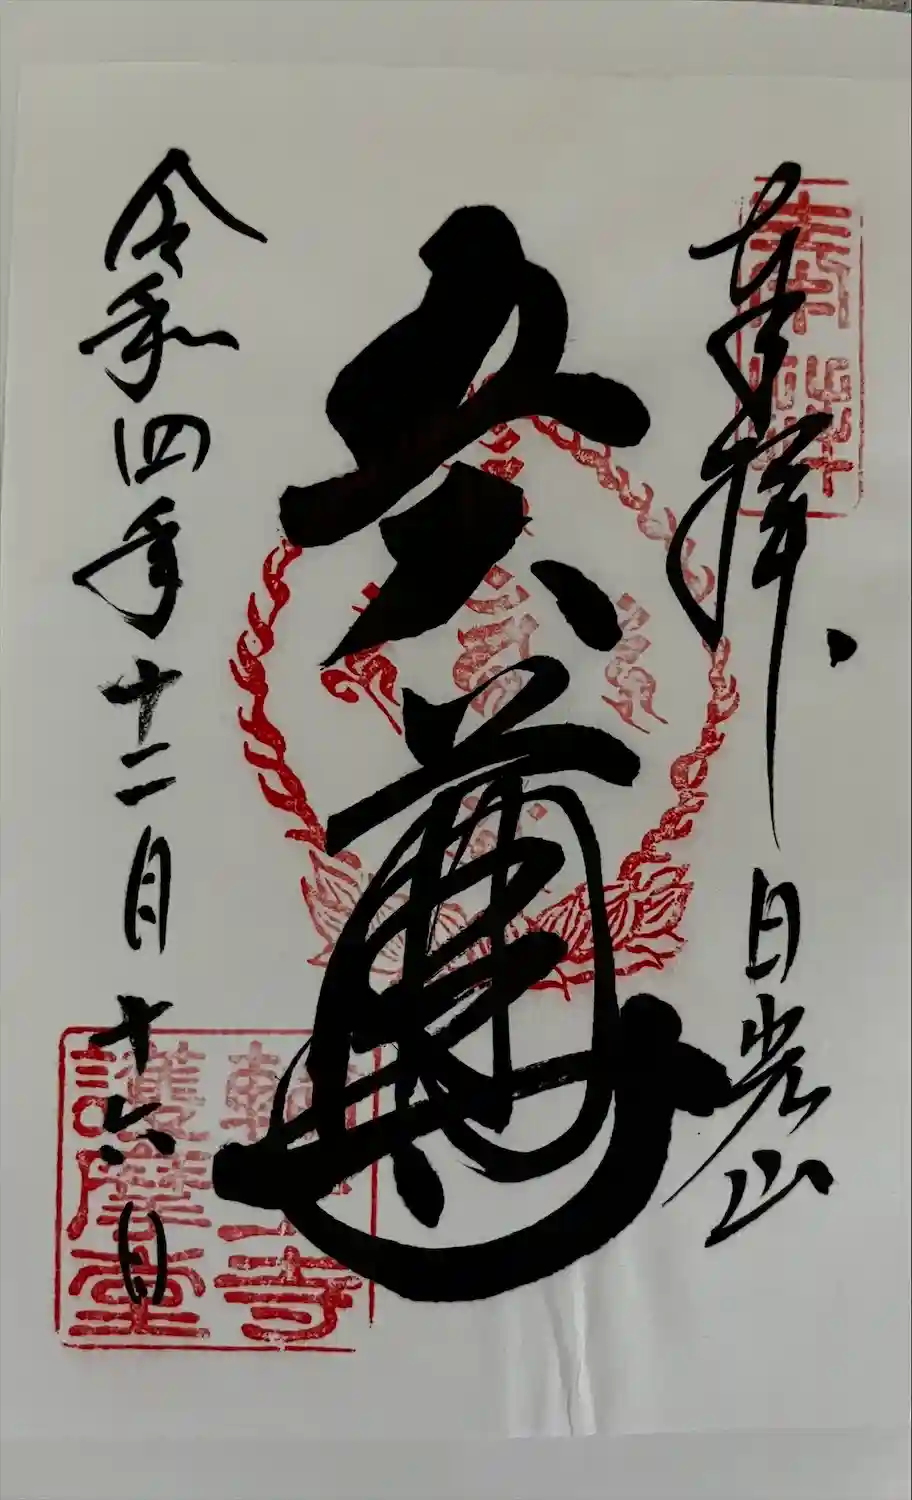 奉拝
日光山
五大尊
令和四年十二月十六日
輪王寺
護摩堂